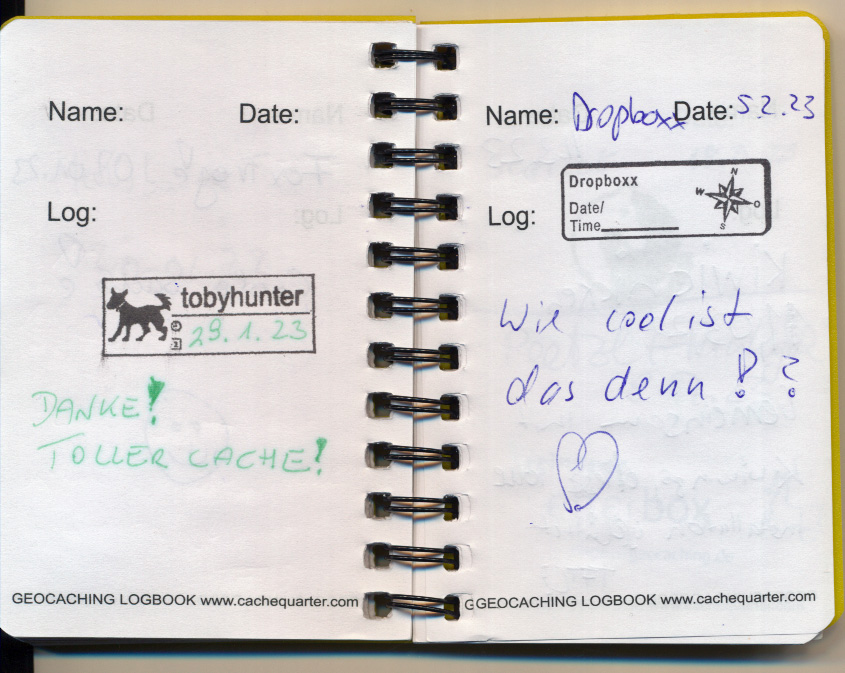 Name: Date:
Log:
tobyhunter
29.1.23
DANKE!
TOLLER CACHE!
GEOCACHING LOGBOOK www.cachequarter.com
Name: Dropboxx Date: 5.2.23
Dropboxx
Date/
Time
N
W
O
S
Log:
Wie cool ist
das denn!?
GEOCACHING LOGBOOK www.cachequarter.com